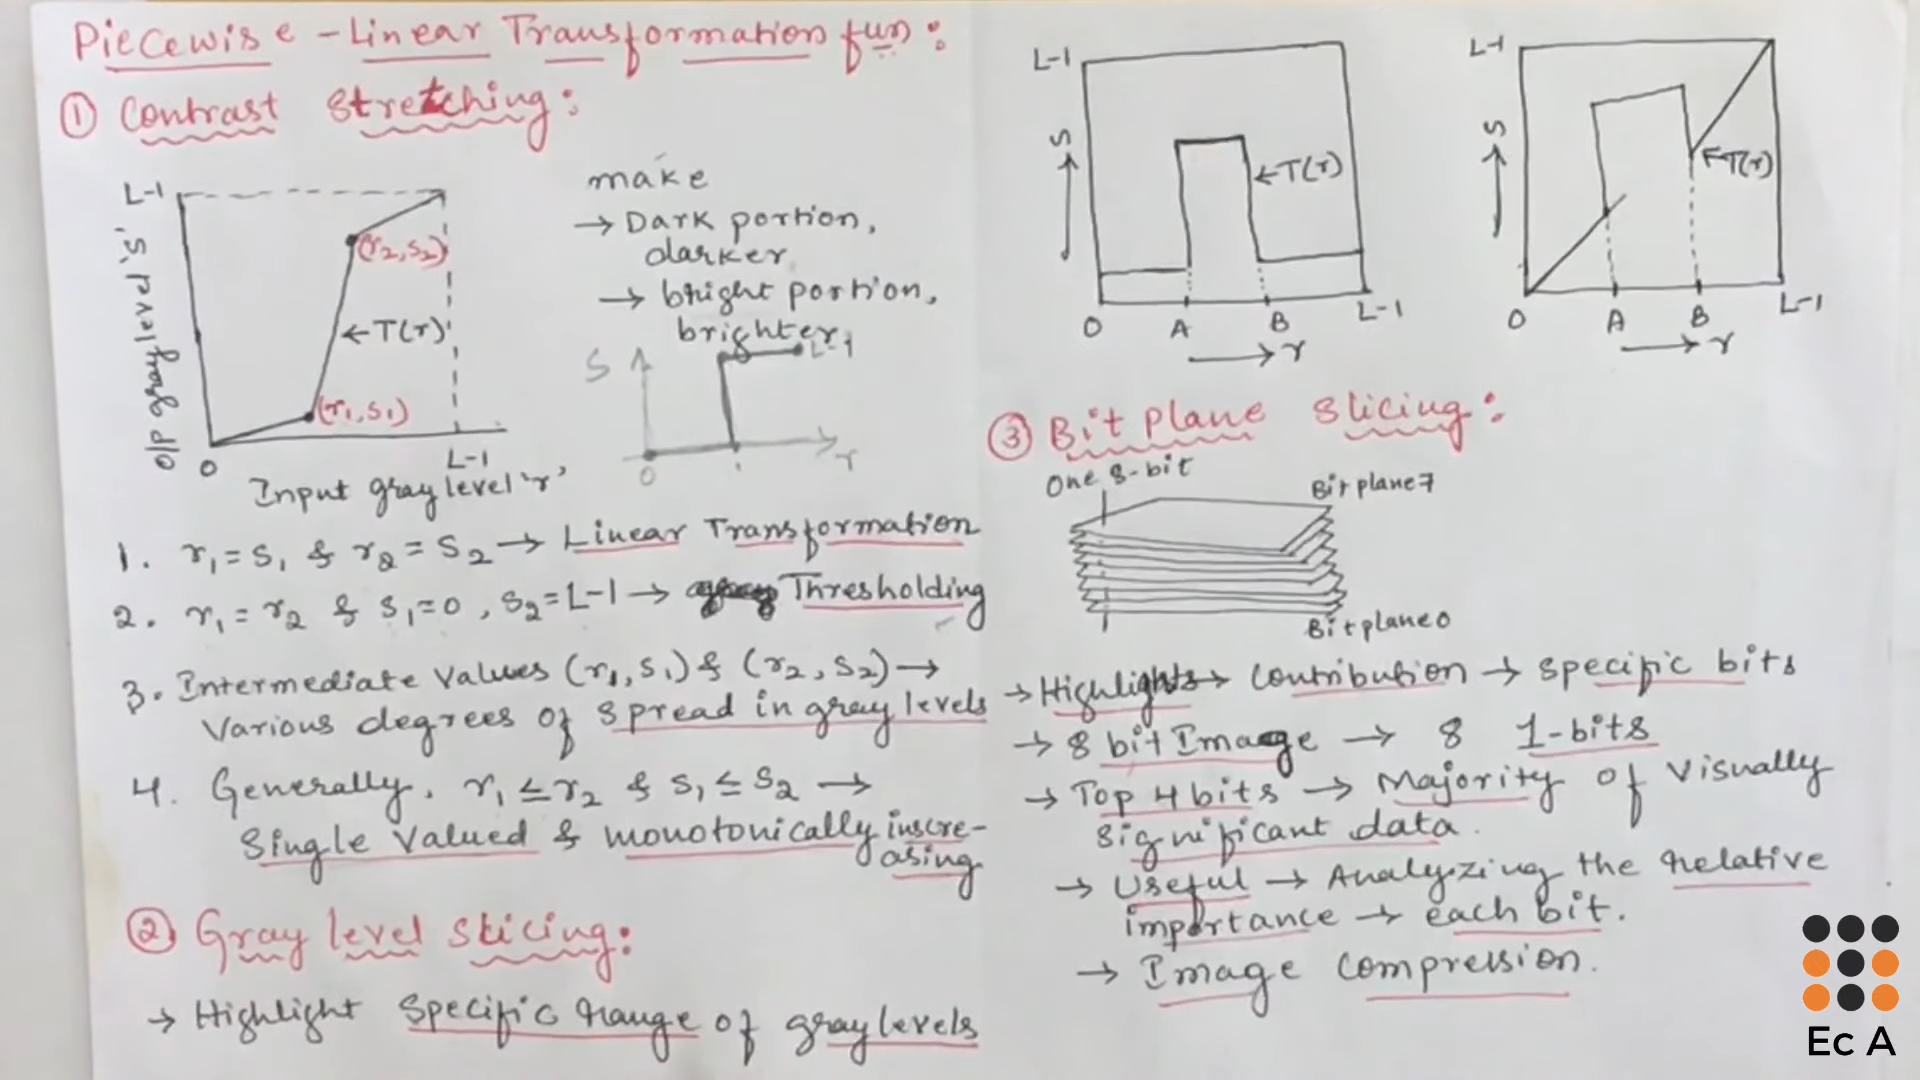 Piecewise - Linear Transformation fun:
① Contrast Stretching:
L-1
(r2, s2)
← T(r)
(r1, s1)
O/P gray level 's'
0
L-1
Input gray level 'r'
make
→ Dark portion,
darker
→ bright portion,
brighter
S
L-1
0
r
1. r1 = s1 & r2 = s2 → Linear Transformation
2. r1 = r2 & s1 = 0, s2 = L-1 → Thresholding
3. Intermediate Values (r1, s1) & (r2, s2) →
Various degrees of spread in gray levels
4. Generally, r1 ≤ r2 & s1 ≤ s2 →
Single Valued & monotonically inscre-
asing
② Gray level slicing:
→ Highlight Specific range of gray levels
L-1
S
← T(r)
0
A
B
L-1
→ r
L-1
S
← T(r)
0
A
B
L-1
→ r
③ Bit plane slicing:
One 8-bit
Bit plane 7
Bit plane 0
→ Highlights → Contribution → specific bits
→ 8 bit Image → 8 1-bits
→ Top 4 bits → Majority of visually
significant data.
→ Useful → Analyzing the relative
importance → each bit.
→ Image compression.
Ec A